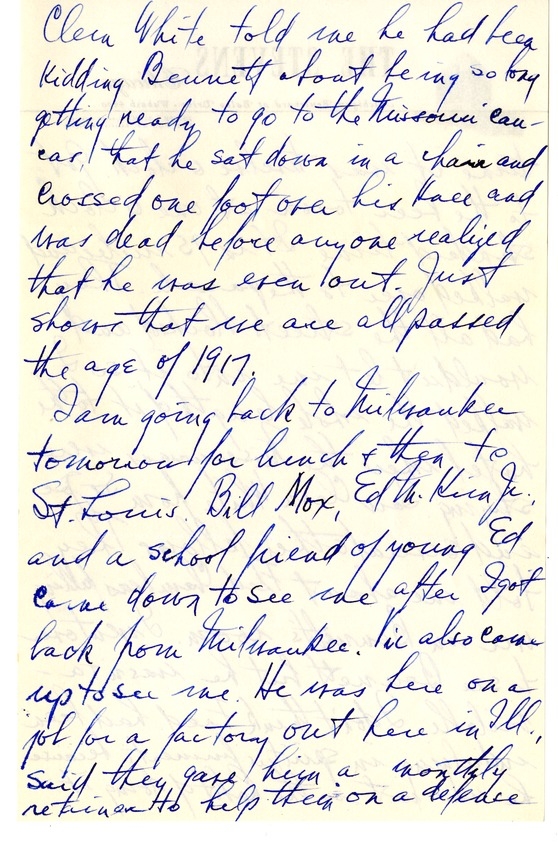 Clem White told me he had been
kidding Bennett about being so long
getting ready to go to the Missouri cau-
cas, that he sat down in a chair and
crossed one foot over his knee and
was dead before anyone realized
that he was even out. Just
shows that we are all passed
the age of 1917.
I am going back to Milwaukee
tomorrow for lunch & then to
St. Louis. Bill Mox, Ed M. Kirn Jr.,
and a school friend of young Ed
came down to see me after I got
back from Milwaukee. Vic also came
up to see me. He was here on a
job for a factory out here in Ill.,
said they gave him a monthly
retainer to help them on a defense